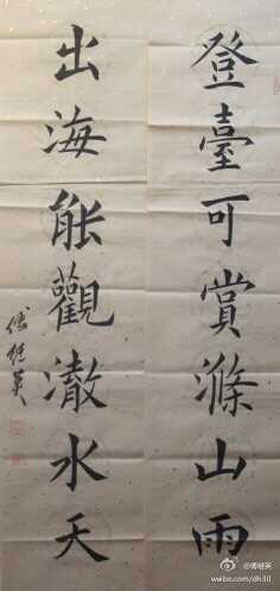 登臺可賞滌山雨
出海能觀澈水天
傅繼英
@傅继英
weibo.com/dh30